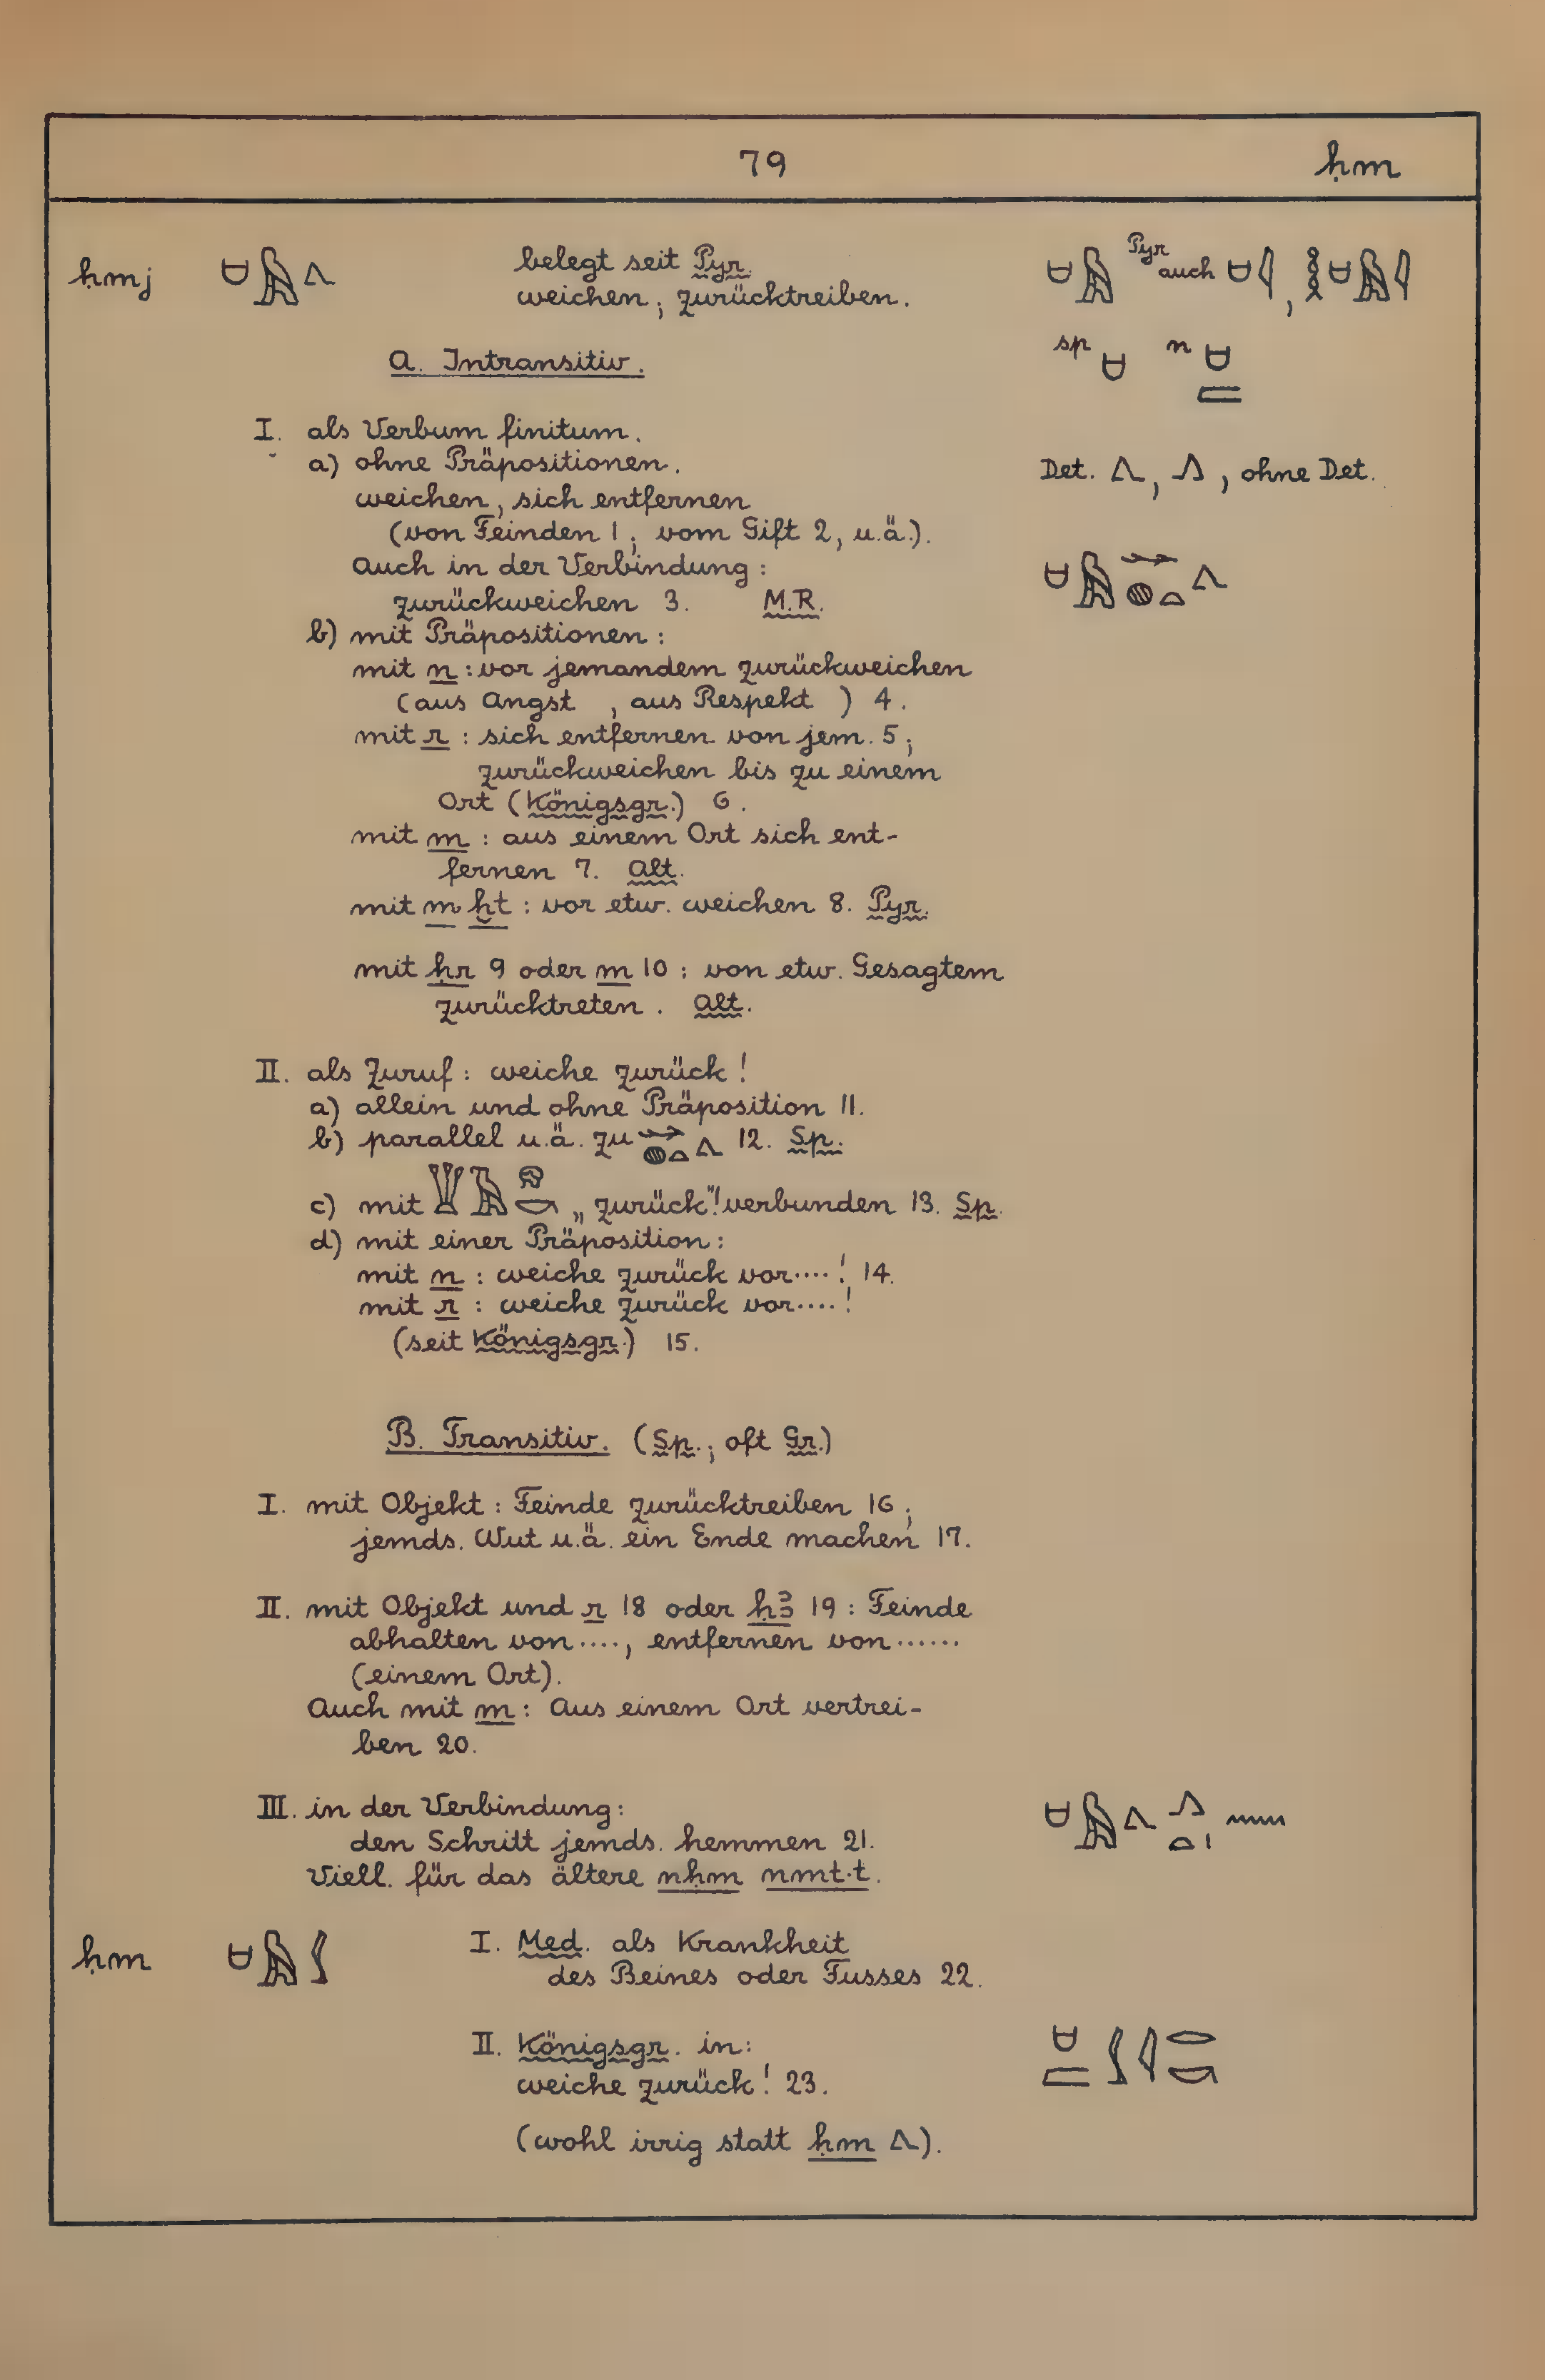 79 ḥm
ḥmj 𓎛𓅓𓂻 belegt seit Pyr. 𓎛𓅓 Pyr auch
weichen; zurücktreiben.
sp n
A. Intransitiv.
I. als Verbum finitum.
a) ohne Präpositionen. Det. 𓂻, 𓂽, ohne Det.
weichen, sich entfernen
(von Feinden 1; vom Gift 2, u.ä.).
Auch in der Verbindung:
zurückweichen 3. M.R.
b) mit Präpositionen:
mit n : vor jemandem zurückweichen
(aus Angst , aus Respekt ) 4.
mit r : sich entfernen von jem. 5;
zurückweichen bis zu einem
Ort (Königsgr.) 6.
mit m : aus einem Ort sich ent-
fernen 7. Alt.
mit m ḫt : vor etw. weichen 8. Pyr.
mit ḥr 9 oder m 10 : von etw. Gesagtem
zurücktreten. Alt.
II. als Zuruf: weiche zurück!
a) allein und ohne Präposition 11.
b) parallel u.ä. zu 12. Sp.
c) mit „zurück"! verbunden 13. Sp.
d) mit einer Präposition:
mit n : weiche zurück vor....! 14.
mit r : weiche zurück vor....!
(seit Königsgr.) 15.
B. Transitiv. (Sp.; oft Gr.)
I. mit Objekt : Feinde zurücktreiben 16;
jemds. Wut u.ä. ein Ende machen 17.
II. mit Objekt und r 18 oder ḥꜣ 19 : Feinde
abhalten von...., entfernen von......
(einem Ort).
Auch mit m : Aus einem Ort vertrei-
ben 20.
III. in der Verbindung:
den Schritt jemds. hemmen 21.
Viell. für das ältere nḥm nmt·t.
ḥm I. Med. als Krankheit
des Beines oder Fusses 22.
II. Königsgr. in:
weiche zurück! 23.
(wohl irrig statt ḥm 𓂻).